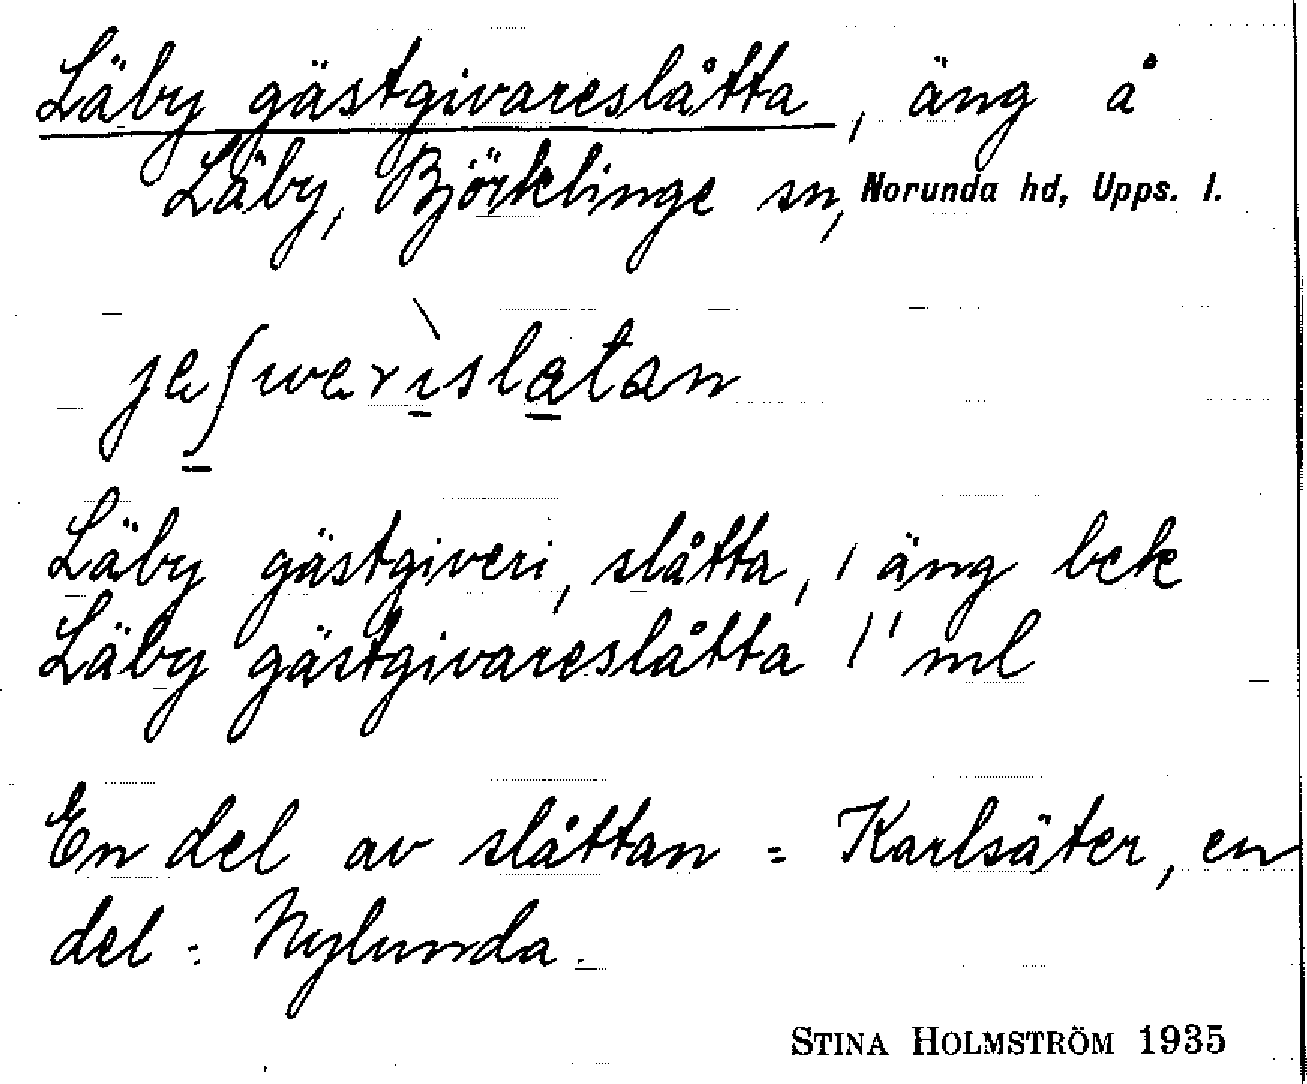 Läby gästgivareslåtta, äng å
Läby, Björklinge sn, Norunda hd, Upps. l.
Läby gästgiveri, slåtta, / äng bek
Läby gästgivareslåtta /' ml
En del av slåttan = Karlsäter, en
del = Nylunda.
STINA HOLMSTRÖM 1935